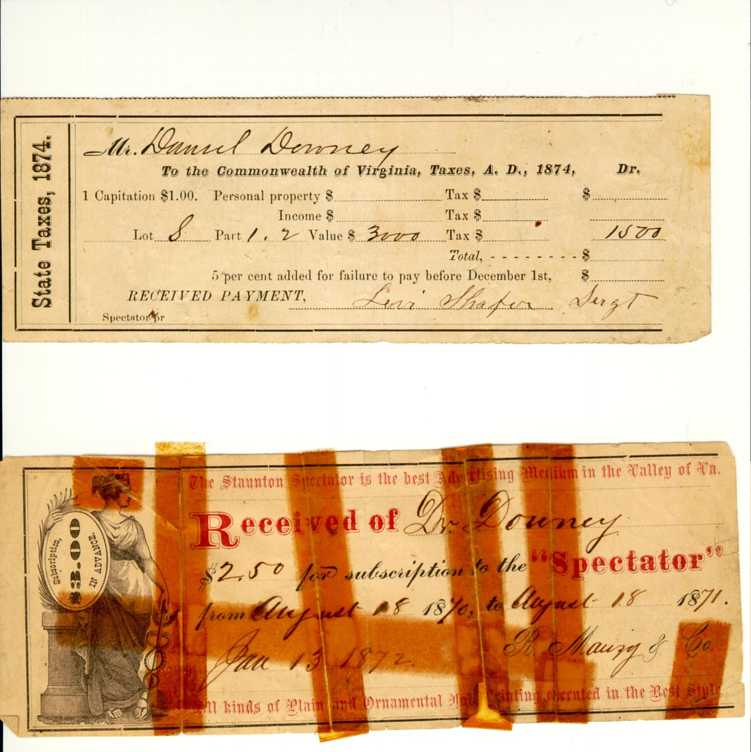 State Taxes, 1874.
Mr. Daniel Downey
To the Commonwealth of Virginia, Taxes, A. D., 1874, Dr.
1 Capitation $1.00. Personal property $ Tax $ $
Income $ Tax $
Lot 8 Part 1.2 Value $ 3000 Tax $ 1500
Total, - - - - - - - - $
5 per cent added for failure to pay before December 1st, $
RECEIVED PAYMENT, Levi Shafer Sergt
Spectator pr
The Staunton Spectator is the best Advertising Medium in the Valley of Va.
Received of Dr. Downey
Subscription, $3.00 IN ADVANCE.
$2.50 for subscription to the "Spectator"
from August 18 1870, to August 18 1871.
Jan 13 1872. R. Mauzy & Co.
All kinds of Plain and Ornamental Job Printing executed in the Best Style